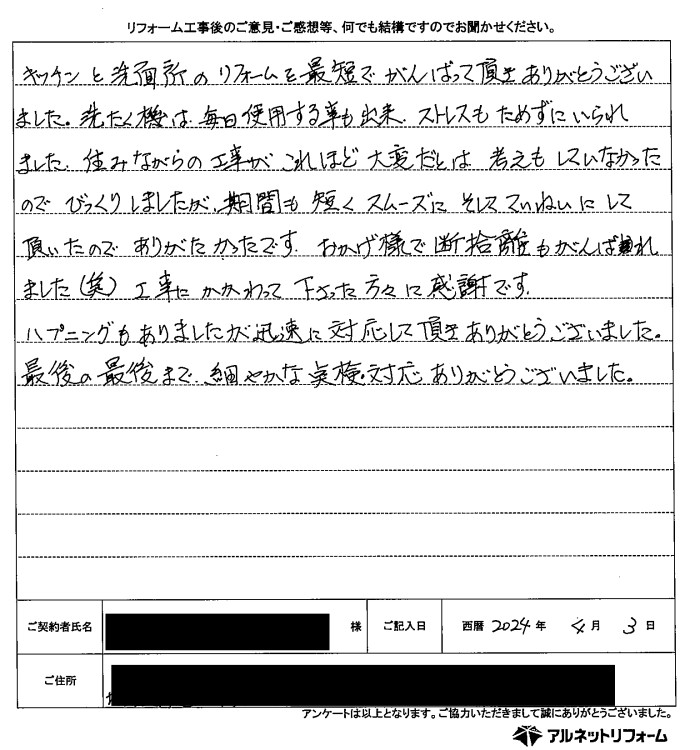 リフォーム工事後のご意見・ご感想等、何でも結構ですのでお聞かせください。
キッチンと洗面所のリフォームを最短でがんばって頂きありがとうござい
ました。洗たく機は毎日使用する事も出来、ストレスもためずにいられ
ました。住みながらの工事がこれほど大変だとは考えもしていなかった
のでびっくりしましたが、期間も短くスムーズにそしてていねいにして
頂いたのでありがたかったです。おかげ様で断捨離もがんばれ
ました(笑) 工事にかかわって下さった方々に感謝です。
ハプニングもありましたが迅速に対応して頂きありがとうございました。
最後の最後まで、細やかな点検・対応ありがとうございました。
ご契約者氏名 様 ご記入日 西暦 2024 年 4 月 3 日
ご住所
アンケートは以上となります。ご協力いただきまして誠にありがとうございました。
アルネットリフォーム